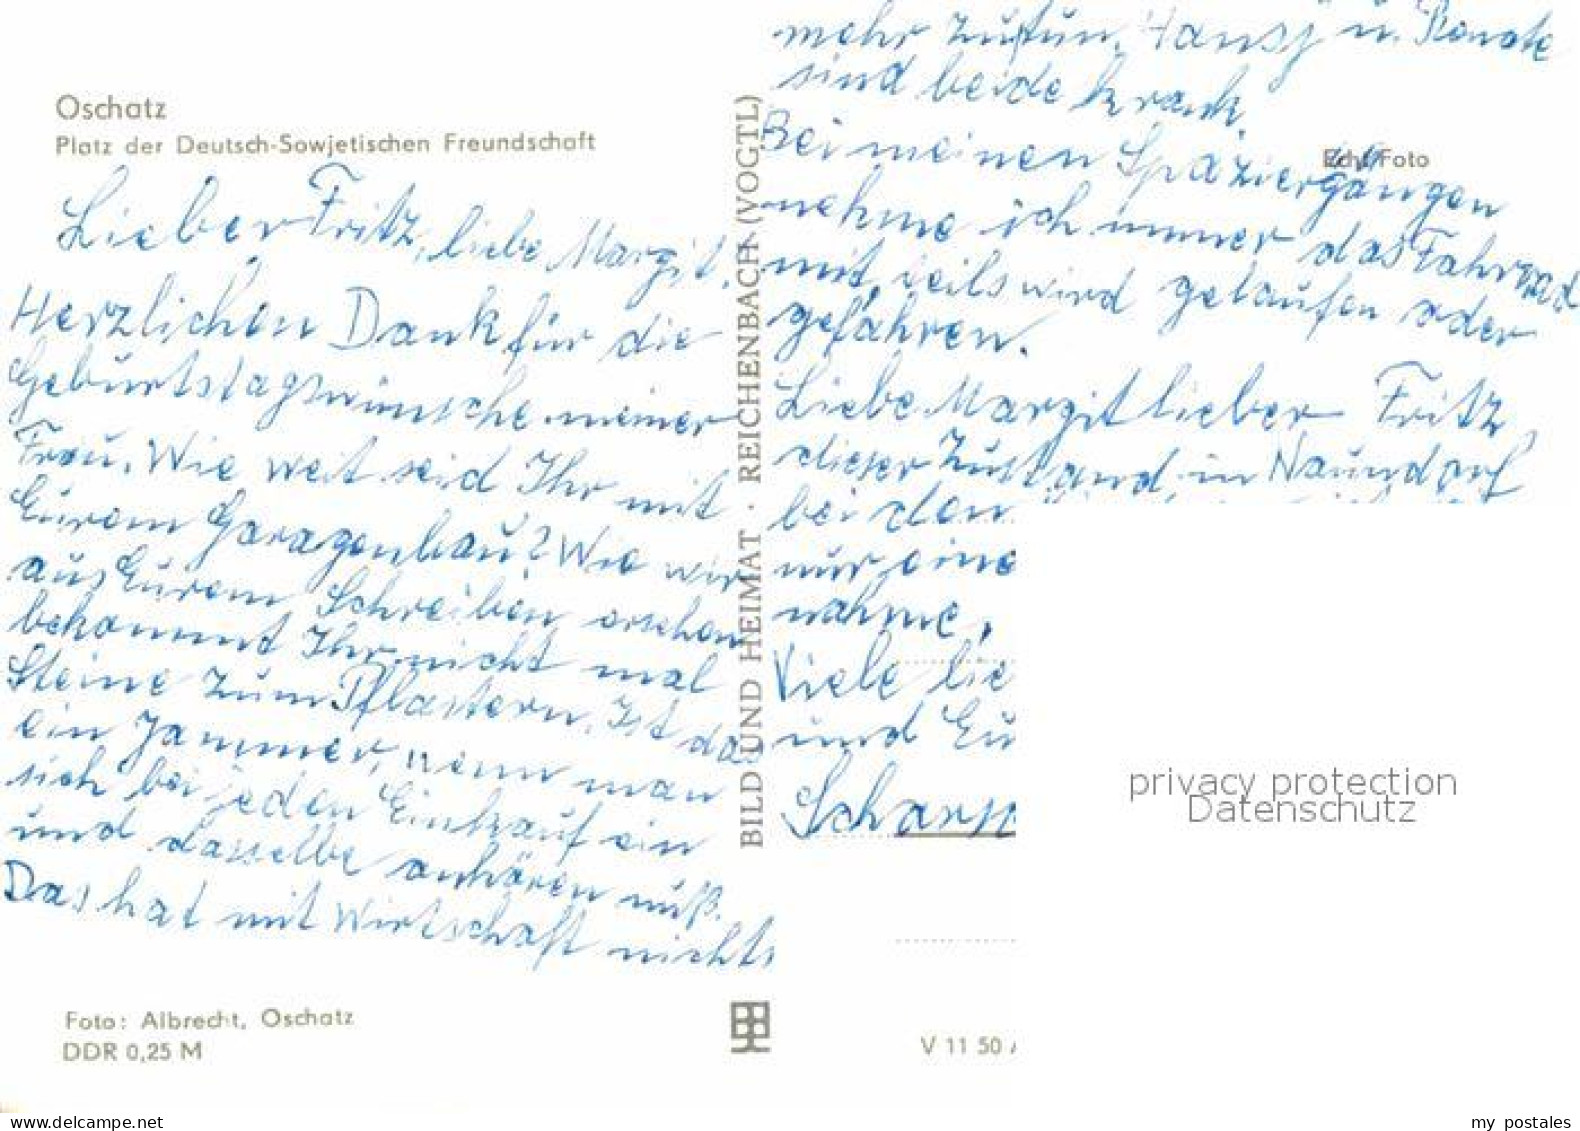 Oschatz
Platz der Deutsch-Sowjetischen Freundschaft
Lieber Fritz, liebe Margit.
Herzlichen Dank für die
Geburtstagswünsche meiner
Frau. Wie weit seid Ihr mit
Eurem Garagenbau? Wie wir
aus Eurem Schreiben ersehen
bekommt Ihr nicht mal
Steine zum Pflastern. Ist das
ein Jammer, wenn man
sich bei jeden Einkauf ein
und dasselbe anhören muß.
Das hat mit Wirtschaft nichts
Foto: Albrecht, Oschatz
DDR 0,25 M
BILD UND HEIMAT · REICHENBACH (VOGTL)
mehr zutun. Hansj u. Renate
sind beide krank.
Echt Foto
Bei meinen Spaziergängen
nehme ich immer das Fahrrad
mit, teils wird gelaufen oder
gefahren.
Liebe Margit lieber Fritz
dieser Zustand in Naundorf
bei den
nur eine
nahme.
Viele lie
und Eu
Scharp
V 11 50 A
privacy protection
Datenschutz
delcampe.net
my_postales